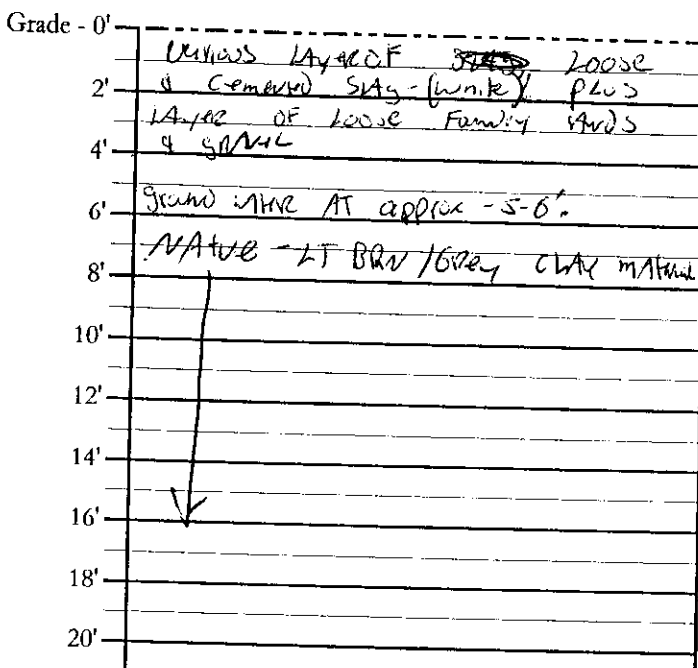 Grade - 0'
various LAyer OF LOOSE
2' & Cemented SLAg - (white) PLUS
LAyer OF LOOSE Foundry SANDS
4' & grAVeL
6' ground wATer AT approx - 5-6'.
NAtive - LT BRN / Grey CLAY mAterial
8'
10'
12'
14'
16'
18'
20'